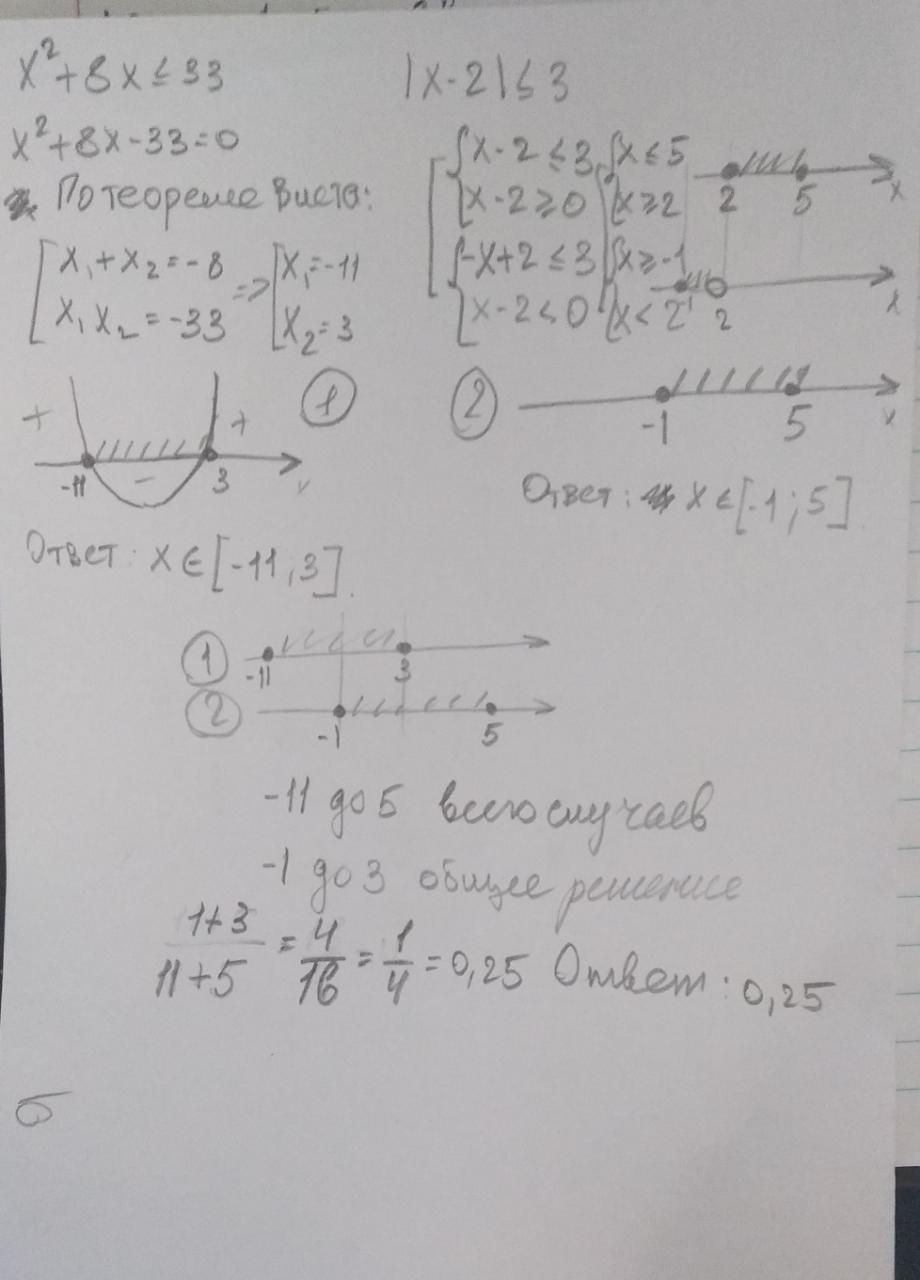 x²+8x≤33
x²+8x-33=0
По теореме Виета:
x₁+x₂=-8 => x₁=-11
x₁x₂=-33 x₂=3
+ - +
-11 3
1
Ответ: x∈[-11;3].
|x-2|≤3
x-2≤3 x≤5
x-2≥0 x≥2
2 5 x
-x+2≤3 x≥-1
x-2<0 x<2
-1 2 x
2
-1 5 x
Ответ: x∈[-1;5].
1 -11 3
2 -1 5
-11 до 5 всего случаев
-1 до 3 общее решение
(1+3)/(11+5) = 4/16 = 1/4 = 0,25 Ответ: 0,25